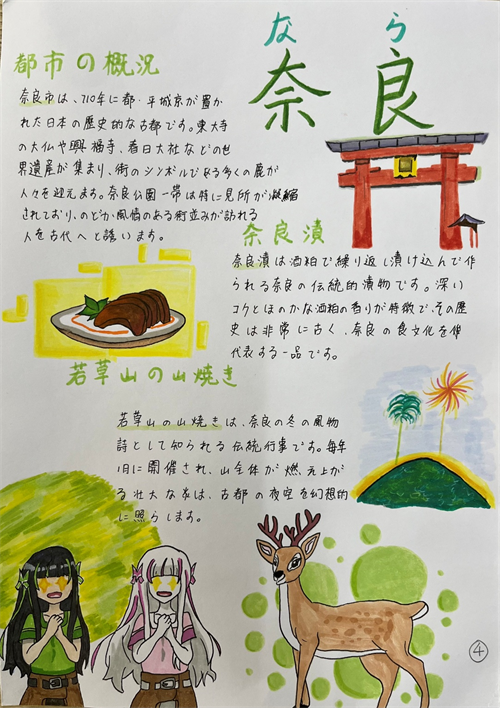 なら
奈良
都市の概況
奈良市は、710年に都・平城京が置か
れた日本の歴史的な古都です。東大寺
の大仏や興福寺、春日大社などの世
界遺産が集まり、街のシンボルである多くの鹿が
人々を迎えます。奈良公園一帯は特に見所が凝縮
されており、のどか風情のある街並みが訪れる
人を古代へと誘います。
奈良漬
奈良漬は酒粕で繰り返し漬け込んで作
られる奈良の伝統的漬物です。深い
コクとほのかな酒粕の香りが特徴で、その歴
史は非常に古く、奈良の食文化を
代表する一品です。
若草山の山焼き
若草山の山焼きは、奈良の冬の風物
詩として知られる伝統行事です。毎年
1月に開催され、山全体が燃え上が
る壮大な炎は、古都の夜空を幻想的
に照らします。
④